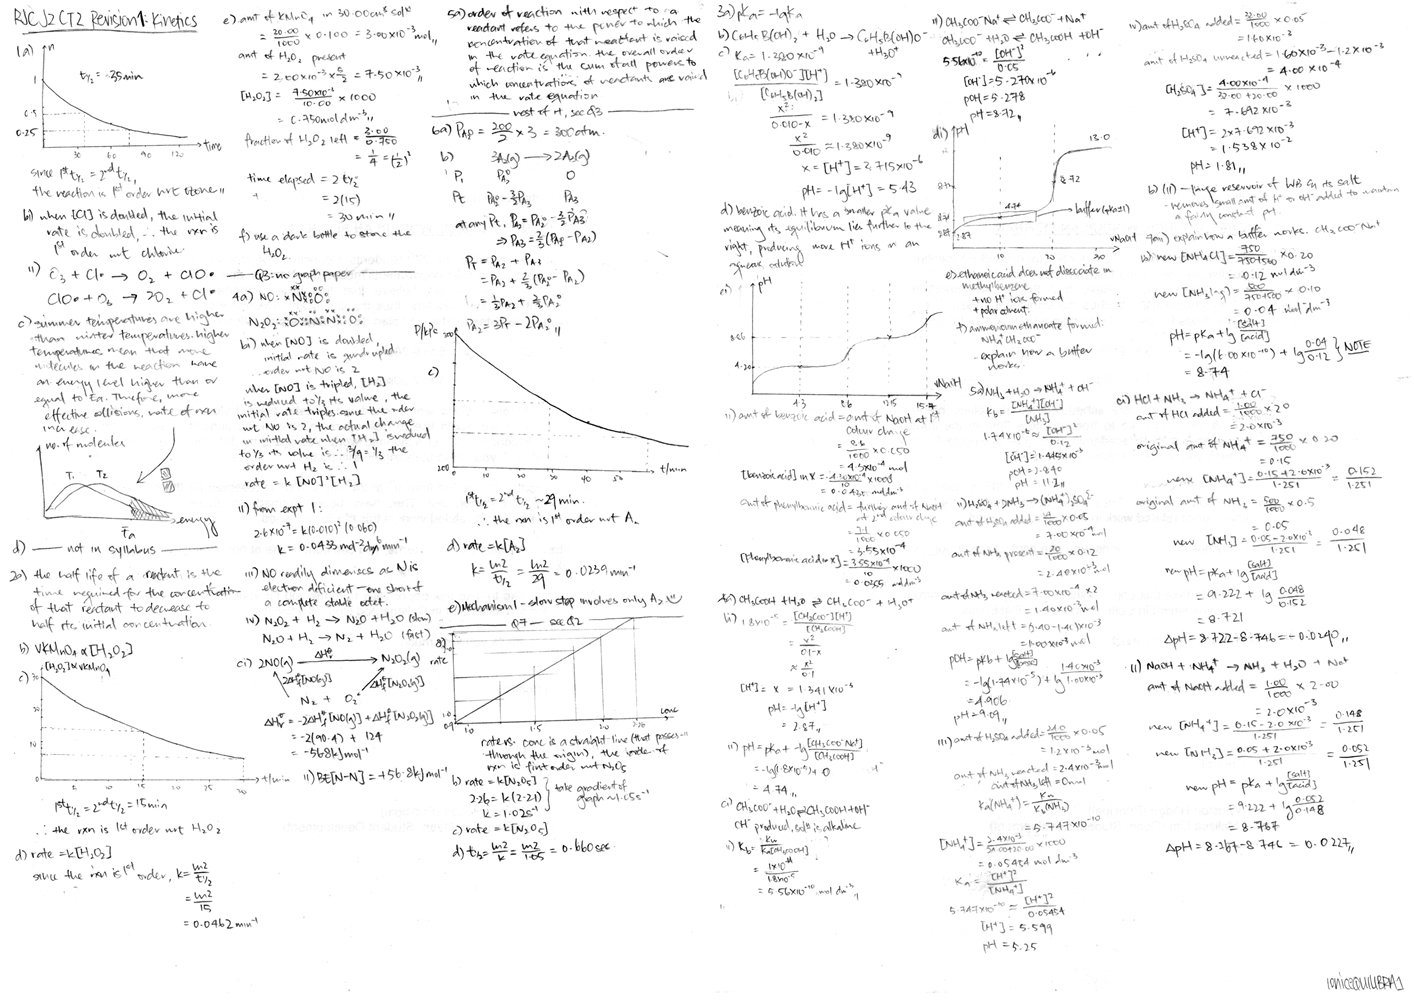 RJC J2 CT2 Revision 1: Kinetics
1a)
t½ = 35min
1
0.5
0.25
30 60 90 120
time
since 1st t½ = 2nd t½,
the reaction is 1st order wrt ozone
b) when [Cl] is doubled, the initial
rate is doubled, ∴ the rxn is
1st order wrt chlorine.
ii) O3 + Cl• → O2 + ClO•
ClO• + O3 → 2O2 + Cl•
c) summer temperatures are higher
than winter temperatures. higher
temperatures mean that more
molecules in the reaction have
an energy level higher than or
equal to Ea. Therefore, more
effective collisions, rate of rxn
increase.
no. of molecules
T1 T2
Ea
energy
d) not in syllabus
2a) the half life of a reactant is the
time required for the concentration
of that reactant to decrease to
half its initial concentration.
b) VKMnO4 ∝ [H2O2]
c) [H2O2] ∝ VKMnO4
30
20
10
5 10 15 20 25 30
t/min
1st t½ = 2nd t½ = 15min
∴ the rxn is 1st order wrt H2O2
d) rate = k[H2O2]
since the rxn is 1st order, k = ln2/t½
= ln2/15
= 0.0462 min⁻¹
e) amt of KMnO4 in 30.00cm³ soln
= 20.00/1000 × 0.100 = 3.00×10⁻³ mol
amt of H2O2 present
= 2.00×10⁻³ × 5/2 = 7.50×10⁻³
[H2O2] = 7.50×10⁻³/10.00 × 1000
= 0.750mol dm⁻³
fraction of H2O2 left = 3.00/0.750
= 1/4 = (1/2)²
time elapsed = 2 t½
= 2(15)
= 30 min
f) use a dark bottle to store the
H2O2.
Q3: no graph paper
4a) NO:
N2O2:
bi) when [NO] is doubled
initial rate is quadrupled
∴ order wrt NO is 2
when [NO] is tripled, [H2]
is reduced to ⅓ its value, the
initial rate triples. since the order
wrt NO is 2, the actual change
in initial rate when [H2] is reduced
to ⅓ its value is ∴ 3/9 = ⅓ the
order wrt H2 is ∴ 1
rate = k [NO]²[H2]
ii) from expt 1:
2.6×10⁻⁷ = k(0.010)² (0.060)
k = 0.0433 mol⁻² dm⁶ min⁻¹
iii) NO readily dimerises as N is
electron deficient - one short of
a complete stable octet.
iv) N2O2 + H2 → N2O + H2O (slow)
N2O + H2 → N2 + H2O (fast)
ci) 2NO(g) → N2O2(g)
2ΔHf[NO(g)]
ΔHf[N2O2(g)]
N2 + O2
ΔHr = -2ΔHf[NO(g)] + ΔHf[N2O2(g)]
= -2(90.4) + 124
= -56.8kJ mol⁻¹
ii) BE[N-N] = +56.8kJ mol⁻¹
5a) order of reaction with respect to a
reactant refers to the power to which the
concentration of that reactant is raised
in the rate equation. the overall order
of reaction is the sum of all powers to
which concentrations of reactants are raised
in the rate equation
rest of it, see Q3
6a) PA2 = 200/2 × 3 = 300atm.
b) 3A2(g) → 2A3(g)
Pi PA2° 0
Pt PA2° - 3/2PA3 PA3
at any Pt, PA2 = PA2° - 3/2PA3
⇒ PA3 = 2/3(PA2° - PA2)
PT = PA2 + PA3
= PA2 + 2/3(PA2° - PA2)
= 1/3PA2 + 2/3PA2°
PA2 = 3PT - 2PA2°
c) P/kPa
300
200
0 10 20 30 40 50 60
t/min
1st t½ = 2nd t½ ~ 29 min.
∴ the rxn is 1st order wrt A2
d) rate = k[A2]
k = ln2/t½ = ln2/29 = 0.0239 min⁻¹
e) Mechanism 1 - slow step involves only A2
Q7 — see Q2
rate
conc
1.0 1.5 2.0 2.26
rate vs. conc is a straight line (that passes
through the origin), the order of
rxn is first order wrt N2O5
b) rate = k[N2O5]
2.26 = k (2.21)
k = 1.02s⁻¹
take gradient of
graph ~ 1.05s⁻¹
c) rate = k[N2O5]
d) t½ = ln2/k = ln2/1.05 = 0.660 sec.
3a) pKa = -lgKa
b) C6H5B(OH)2 + H2O → C6H5B(OH)O⁻
+ H3O⁺
c) Ka = 1.380×10⁻⁹
[C6H5B(OH)O⁻][H⁺]/[C6H5B(OH)2] = 1.380×10⁻⁹
x²/0.010-x = 1.380×10⁻⁹
x²/0.010 ≈ 1.380×10⁻⁹
x = [H⁺] = 3.715×10⁻⁶
pH = -lg[H⁺] = 5.43
d) benzoic acid. It has a smaller pKa value
meaning its equilibrium lies further to the
right, producing more H⁺ ions in an
aqueous solution
ei) pH
8.56
4.20
4.3 8.6 12.15 15.7
VNaOH
ii) amt of benzoic acid = amt of NaOH at 1st
colour change
= 8.6/1000 × 0.050
= 4.3×10⁻⁴ mol
[benzoic acid] in X = 4.30×10⁻⁴/10 × 1000
= 0.0430 mol dm⁻³
amt of phenylboronic acid = further amt of NaOH
at 2nd colour change
= 7.1/1000 × 0.050
= 3.55×10⁻⁴
[phenylboronic acid in X] = 3.55×10⁻⁴/10 × 1000
= 0.0355 mol dm⁻³
CH3COOH + H2O ⇌ CH3COO⁻ + H3O⁺
1.8×10⁻⁵ = [CH3COO⁻][H⁺]/[CH3COOH]
= x²/0.1-x
≈ x²/0.1
[H⁺] = x = 1.341×10⁻³
pH = -lg[H⁺]
= 2.87
ii) pH = pKa + lg[CH3COO⁻Na⁺]/[CH3COOH]
= -lg(1.8×10⁻⁵) + 0
= 4.74
ci) CH3COO⁻ + H2O ⇌ CH3COOH + OH⁻
OH⁻ produced, soln is alkaline
ii) Kb = Kw/Ka[CH3COOH]
= 1×10⁻¹⁴/1.8×10⁻⁵
= 5.56×10⁻¹⁰ mol dm⁻³
ii) CH3COO⁻Na⁺ ⇌ CH3COO⁻ + Na⁺
CH3COO⁻ + H2O ⇌ CH3COOH + OH⁻
5.56×10⁻¹⁰ = [OH⁻]²/0.05
[OH⁻] = 5.270×10⁻⁶
pOH = 5.278
pH = 8.72
di) pH
13.0
8.72
4.74
2.87
buffer (pKa±1)
10 20 30
VNaOH
e) ethanoic acid does not dissociate in
methylbenzene
+ no H⁺ ions formed
+ polar solvent.
f) ammonium ethanoate formed:
NH4⁺CH3COO⁻
- explain how a buffer
works.
5a) NH3 + H2O → NH4⁺ + OH⁻
Kb = [NH4⁺][OH⁻]/[NH3]
1.74×10⁻⁵ ≈ [OH⁻]²/0.12
[OH⁻] = 1.445×10⁻³
pOH = 2.840
pH = 11.2
ii) H2SO4 + 2NH3 → (NH4⁺)2SO4²⁻
amt of H2SO4 added = 14/1000 × 0.05
= 7.00×10⁻⁴ mol
amt of NH3 present = 20/1000 × 0.12
= 2.40×10⁻³ mol
amt of NH3 reacted = 7.00×10⁻⁴ × 2
= 1.40×10⁻³ mol
amt of NH3 left = 2.40-1.40×10⁻³
= 1.00×10⁻³ mol
pOH = pKb + lg[salt]/[base]
= -lg(1.74×10⁻⁵) + lg 1.40×10⁻³/1.00×10⁻³
= 4.906
pH = 9.09
iii) amt of H2SO4 added = 24.0/1000 × 0.05
= 1.2×10⁻³ mol
amt of NH3 reacted = 2.4×10⁻³ mol
amt of NH3 left = 0 mol
Ka(NH4⁺) = Kw/Kb(NH3)
= 5.747×10⁻¹⁰
[NH4⁺] = 2.4×10⁻³/24.00+20.00 × 1000
= 0.05454 mol dm⁻³
Ka = [H⁺]²/[NH4⁺]
5.747×10⁻¹⁰ = [H⁺]²/0.05454
[H⁺] = 5.599
pH = 5.25
iv) amt of H2SO4 added = 32.00/1000 × 0.05
= 1.60×10⁻³
amt of H2SO4 unreacted = 1.60×10⁻³ - 1.2×10⁻³
= 4.00×10⁻⁴
[H2SO4] = 4.00×10⁻⁴/32.00+20.00 × 1000
= 7.692×10⁻³
[H⁺] = 2×7.692×10⁻³
= 1.538×10⁻²
pH = 1.81
b) (ii) - large reservoir of WB & its salt
- removes small amt of H⁺ or OH⁻ added to maintain
a fairly constant pH.
explain how a buffer works. CH3COO⁻Na⁺
new [NH4Cl] = 750/750+500 × 0.20
= 0.12 mol dm⁻³
new [NH3] = 500/750+500 × 0.10
= 0.04 mol dm⁻³
pH = pKa + lg[salt]/[acid]
= -lg(6.00×10⁻¹⁰) + lg 0.04/0.12
NOTE
= 8.74
ci) HCl + NH3 → NH4⁺ + Cl⁻
amt of HCl added = 1.00/1000 × 2.0
= 2.0×10⁻³
original amt of NH4⁺ = 750/1000 × 0.20
= 0.15
new [NH4⁺] = 0.15+2.0×10⁻³/1.251 = 0.152/1.251
original amt of NH3 = 500/1000 × 0.5
= 0.05
new [NH3] = 0.05-2.0×10⁻³/1.251 = 0.048/1.251
new pH = pKa + lg[salt]/[acid]
= 9.222 + lg 0.048/0.152
= 8.721
ΔpH = 8.722-8.746 = -0.0240
(ii) NaOH + NH4⁺ → NH3 + H2O + Na⁺
amt of NaOH added = 1.00/1000 × 2.00
= 2.0×10⁻³
new [NH4⁺] = 0.15-2.0×10⁻³/1.251 = 0.148/1.251
new [NH3] = 0.05+2.0×10⁻³/1.251 = 0.052/1.251
new pH = pKa + lg[salt]/[acid]
= 9.222 + lg 0.052/0.148
= 8.767
ΔpH = 8.767-8.746 = 0.0227
IONIC EQUILIBRIA 1